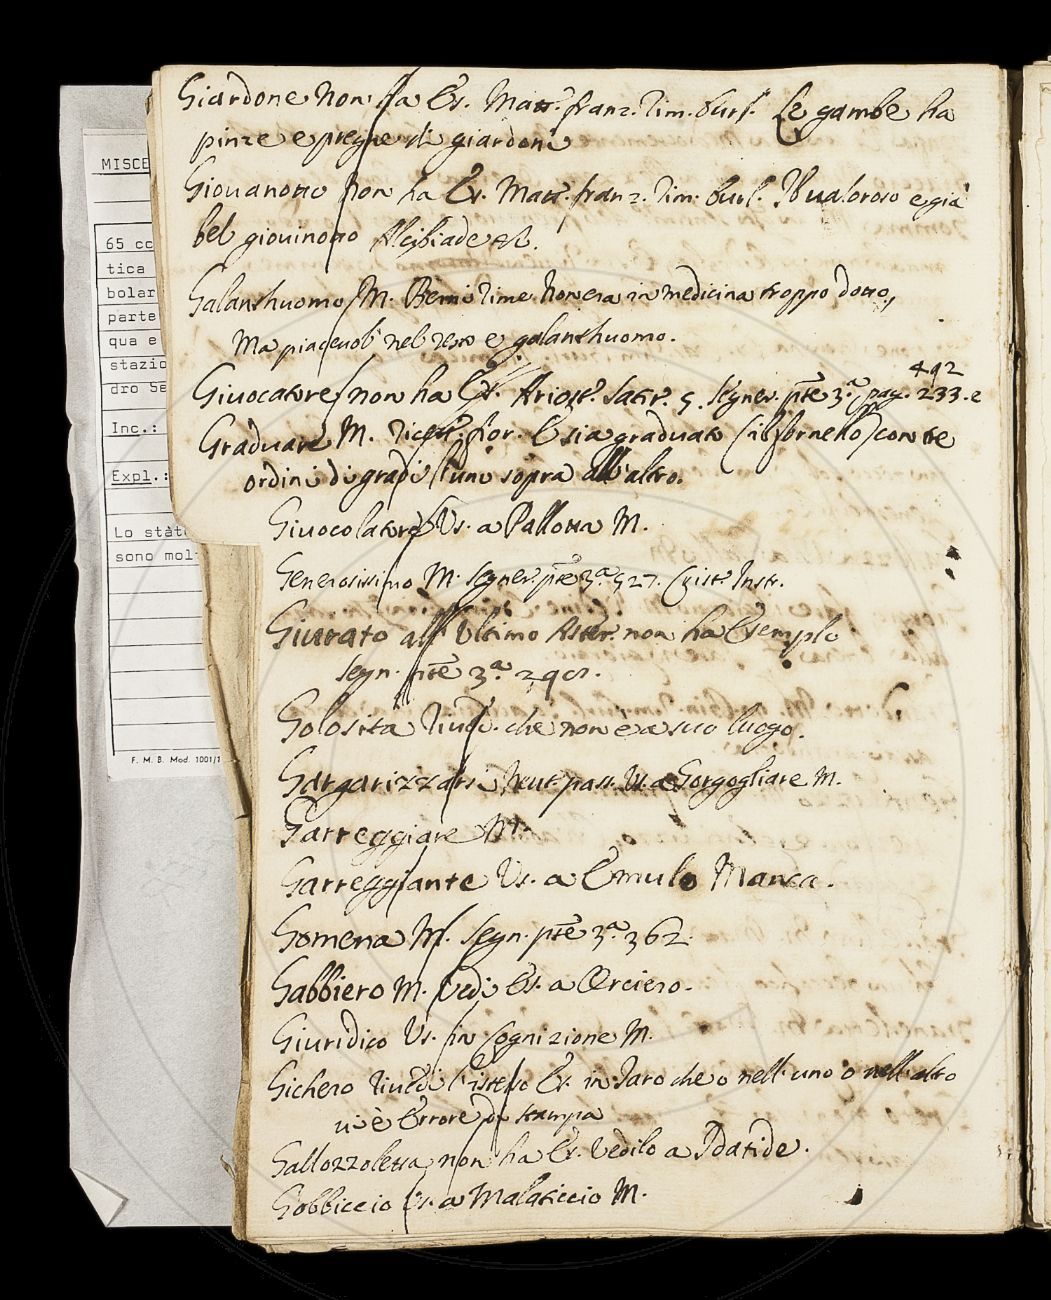 Giardone Non ha Es. Matt. franz. Rim. burl. Le gambe ha
pinze e pregne di giardoni
Giovanotto non ha Es. Matt. franz. Rim. burl. Il valoroso e già
bel giovinotto Alcibiade
Galanthuomo M. Berni Rime. Non era in medicina troppo dotto,
Ma piacevol nel resto e galanthuomo.
492
Giuocatore non ha Es. Ariost. Satir. 5. Segner. pte 3.a pag. 233. e
Graduare M. Ricett. fior. E sia graduato (il fornello) con tre
ordini di gradi l'uno sopra all'altro.
Giuocolatore Es. a Pallotta M.
Generosissimo M. Segner. pte 3.a 527. Crist. Instr.
Giurato all' Ultimo Aster. non ha Esemplo
Segn. pte 3.a
Golosità Rived. che non è a suo luogo.
Gargarizzarsi Neut. pass. Es. a Gorgogliare M.
Garreggiare M.
Garreggiante Es. a Emulo Manca.
Gomena M. Segn. pte 3.a 362.
Gabbiero M. Vedi Es. a Orciero.
Giuridico Es. in Cognizione M.
Gichero Rivedi l'istesso Es. in Jaro che o nell'uno o nell'altro
vi è Errore di stampa
Gallozzoletta non ha Es. Vedilo a Idatide.
Gobbiccio Es. a Malaticcio M.
MISCE
65 cc
tica
bolar
parte
qua e
stazio
dro Sa
Inc.:
Expl.:
Lo stato
sono mol
F. M. B. Mod. 1001/1